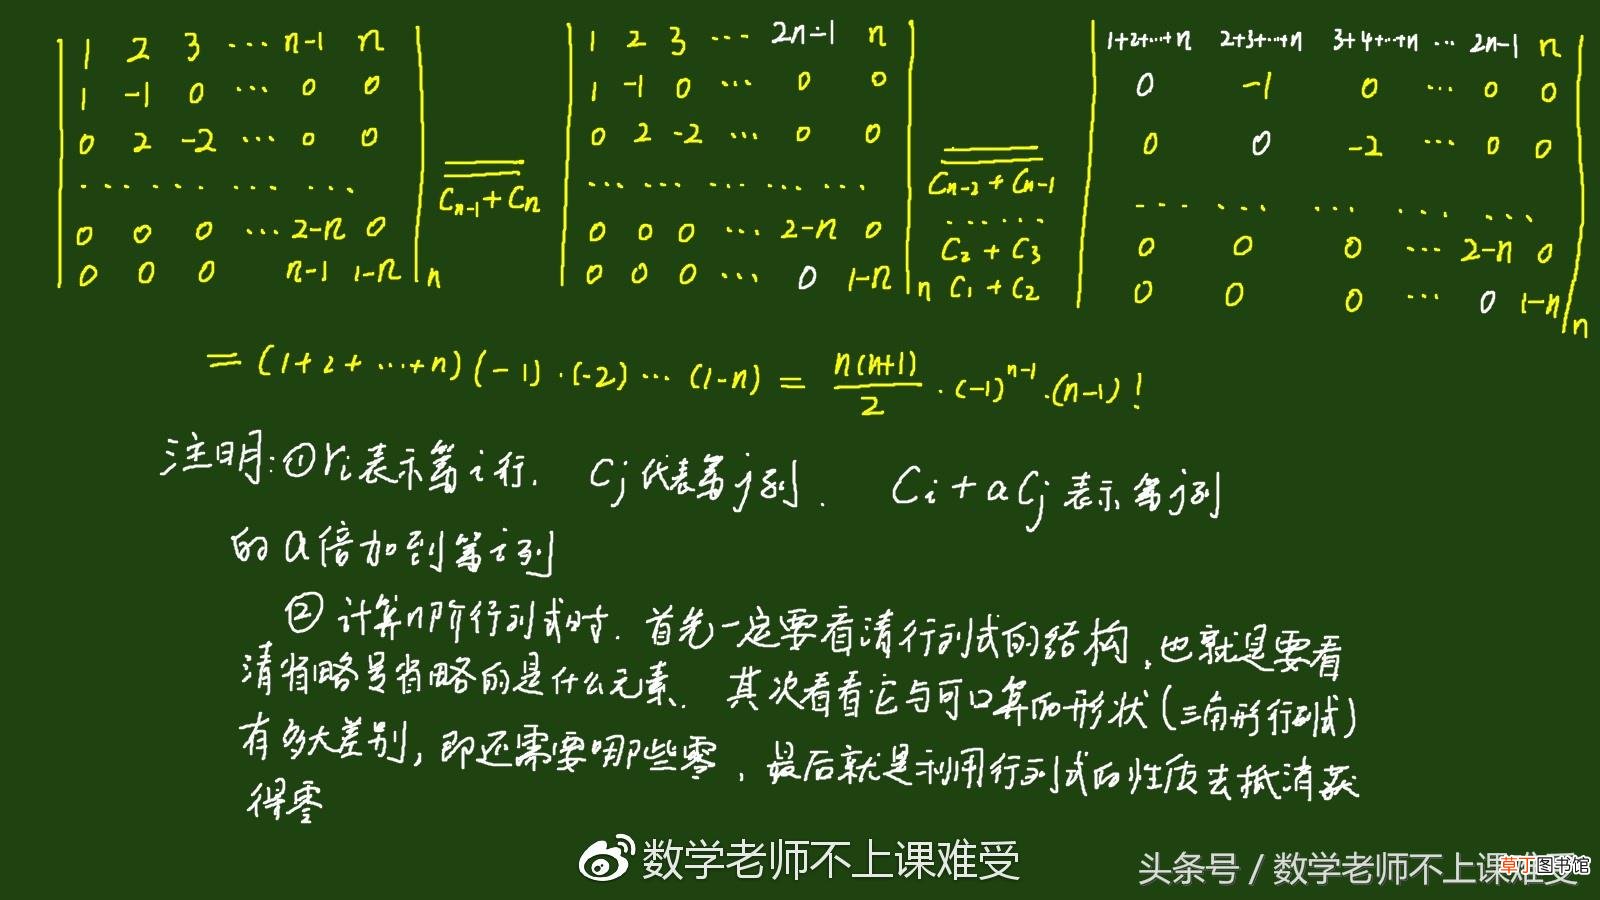 1 2 3 ··· n-1 n
1 -1 0 ··· 0 0
0 2 -2 ··· 0 0
··· ··· ··· ···
0 0 0 ··· 2-n 0
0 0 0 n-1 1-n n
C_{n-1}+C_n
1 2 3 ··· 2n-1 n
1 -1 0 ··· 0 0
0 2 -2 ··· 0 0
··· ··· ··· ··· ···
0 0 0 ··· 2-n 0
0 0 0 ··· 0 1-n n
C_{n-2}+C_{n-1}
······
C_2+C_3
C_1+C_2
1+2+···+n 2+3+···+n 3+4+···+n ··· 2n-1 n
0 -1 0 ··· 0 0
0 0 -2 ··· 0 0
··· ··· ··· ··· ···
0 0 0 ··· 2-n 0
0 0 0 ··· 0 1-n n
=(1+2+···+n)(-1)·(-2)···(1-n)=\frac{n(n+1)}{2}·(-1)^{n-1}·(n-1)!
注明:①r_i表示第i行. C_j代表第j列. C_i+aC_j表示第j列
的a倍加到第i列
②计算n阶行列式时.首先一定要看清行列式的结构,也就是要看
清省略号省略的是什么元素.其次看看它与可口算的形状(三角形行列式)
有多大差别,即还需要哪些零,最后就是利用行列式的性质去抵消获
得零
数学老师不上课难受
头条号 / 数学老师不上课难受
草丁图书馆